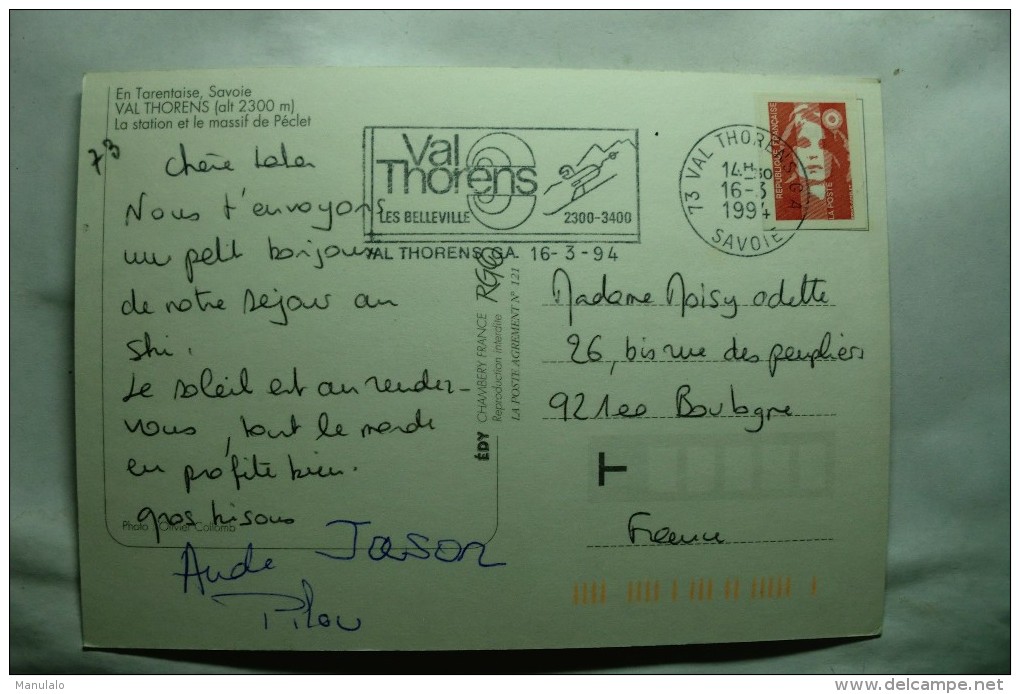 En Tarentaise, Savoie
VAL THORENS (alt 2300 m)
La station et le massif de Péclet
73
Chère
Nous t'envoyons
un petit bonjour
de notre séjour au
ski.
Le soleil est au rendez-
vous, tout le monde
en profite bien.
gros bisous
Photo : Olivier Collomb
Aude Jason
Pilou
Val
Thorens
LES BELLEVILLE 2300-3400
VAL THORENS GA. 16-3-94
73 VAL THORENS G A
14H30
16-3
1994
SAVOIE
RÉPUBLIQUE FRANÇAISE
LA POSTE
ÉDY CHAMBERY FRANCE
Reproduction interdite
LA POSTE AGREMENT N° 121
Madame Noisy odette
26, bis rue des peupliers
92100 Boulogne
T
France
Manulalo
www.delcampe.net